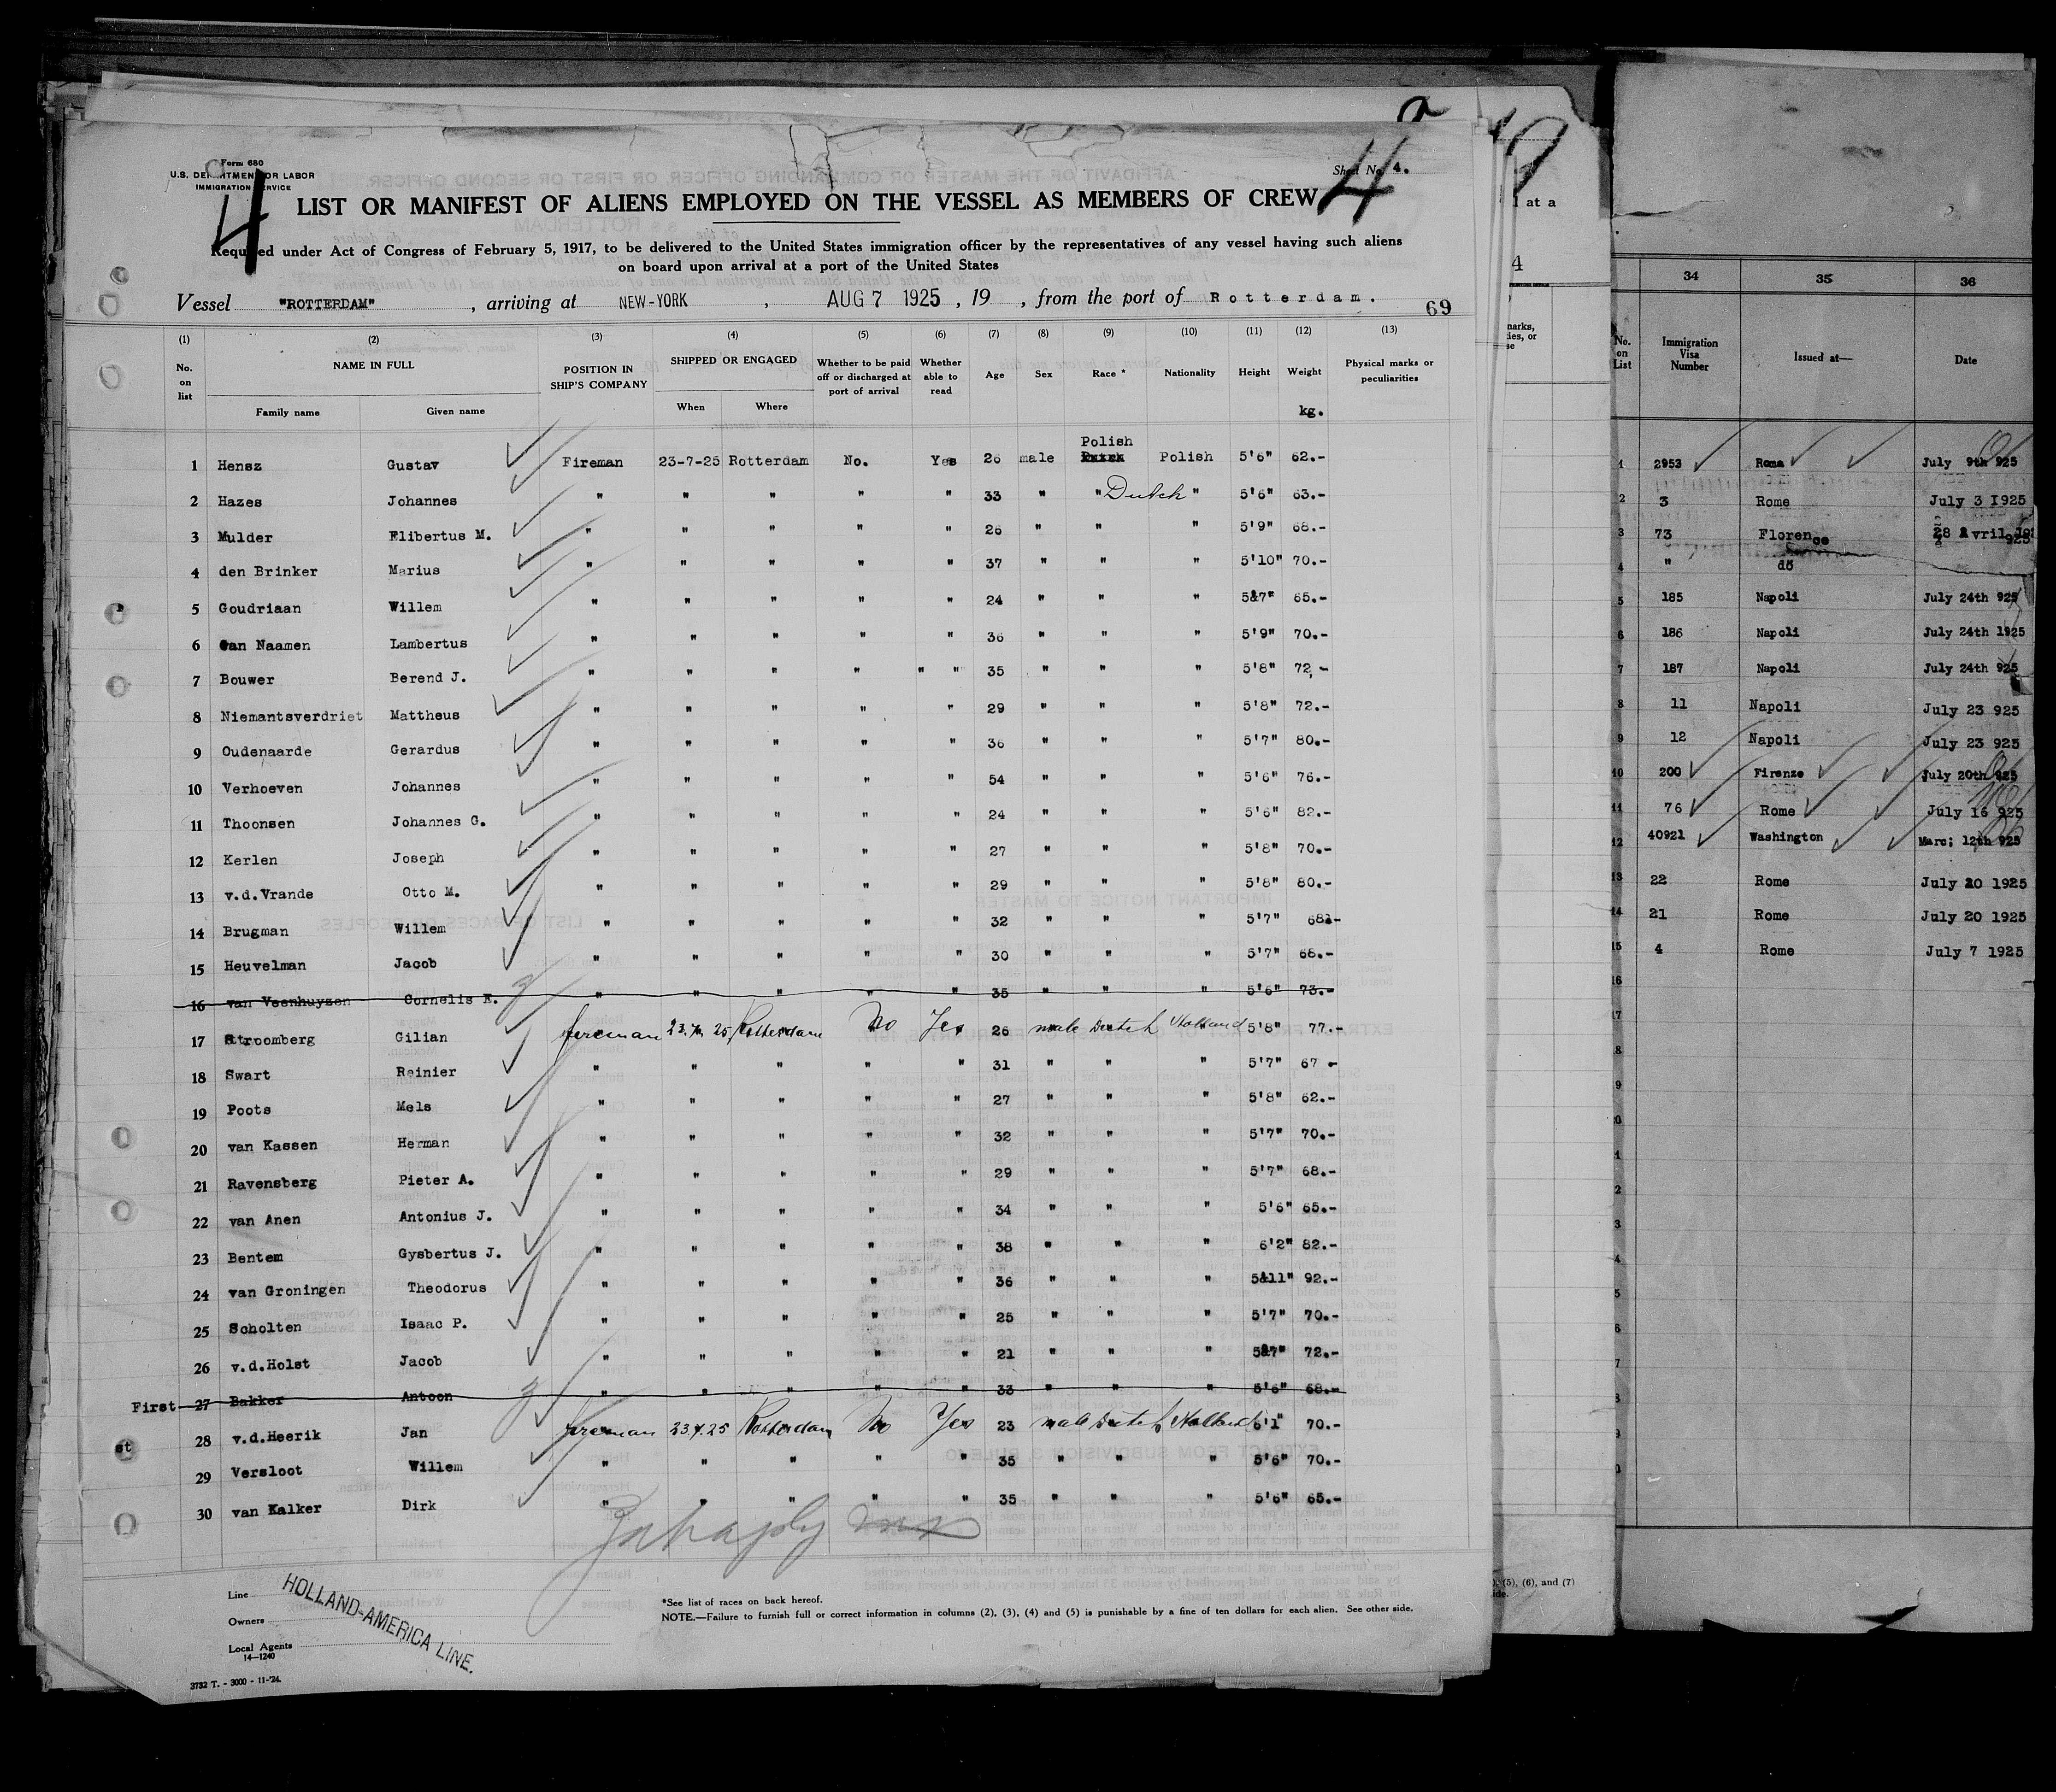 Form 680
U.S. DEPARTMENT OR LABOR
IMMIGRATION SERVICE
4
Sheet No. 4.
4
LIST OR MANIFEST OF ALIENS EMPLOYED ON THE VESSEL AS MEMBERS OF CREW
Required under Act of Congress of February 5, 1917, to be delivered to the United States immigration officer by the representatives of any vessel having such aliens
on board upon arrival at a port of the United States
Vessel "ROTTERDAM", arriving at NEW-YORK, AUG 7 1925, 19 , from the port of Rotterdam. 69
(1) (2) (3) (4) (5) (6) (7) (8) (9) (10) (11) (12) (13)
No. on list NAME IN FULL POSITION IN SHIP'S COMPANY SHIPPED OR ENGAGED Whether to be paid off or discharged at port of arrival Whether able to read Age Sex Race * Nationality Height Weight Physical marks or peculiarities
Family name Given name When Where kg.
Polish
1 Hensz Gustav Fireman 23-7-25 Rotterdam No. Yes 26 male Polish 5'6" 62.-
2 Hazes Johannes " " " " " 33 " " Dutch " 5'6" 63.-
3 Mulder Flibertus M. " " " " " 26 " " " 5'9" 68.-
4 den Brinker Marius " " " " " 37 " " " 5'10" 70.-
5 Goudriaan Willem " " " " " 24 " " " 5&7" 65.-
6 van Naamen Lambertus " " " " " 36 " " " 5'9" 70.-
7 Bouwer Berend J. " " " " " " 35 " " " 5'8" 72,-
8 Niemantsverdriet Mattheus " " " " " 29 " " " 5'8" 72.-
9 Oudenaarde Gerardus " " " " " 36 " " " 5'7" 80.-
10 Verhoeven Johannes " " " " " 54 " " " 5'6" 76.-
11 Thoonsen Johannes G. " " " " " 24 " " " 5'6" 82.-
12 Kerlen Joseph " " " " " 27 " " " 5'8" 70.-
13 v.d.Vrande Otto M. " " " " " 29 " " " 5'8" 80.-
14 Brugman Willem " " " " " 32 " " " 5'7" 68.-
15 Heuvelman Jacob " " " " " 30 " " " 5'7" 68.-
16 van Veenhuyzen Cornelis K. " " " " " 35 " " " 5'6" 73.-
17 Stroomberg Gilian fireman 23.7.25 Rotterdam No Yes 26 male Dutch Holland 5'8" 77.-
18 Swart Reinier " " " " " 31 " " " 5'7" 67.-
19 Poots Mels " " " " " 27 " " " 5'8" 62.-
20 van Kassen Herman " " " " " 32 " " " 5'7" 70.-
21 Ravensberg Pieter A. " " " " " 29 " " " 5'7" 68.-
22 van Anen Antonius J. " " " " " 34 " " " 5'6" 65.-
23 Bentem Gysbertus J. " " " " " 38 " " " 6'2" 82.-
24 van Groningen Theodorus " " " " " 36 " " " 5&11" 92.-
25 Scholten Isaac P. " " " " " 25 " " " 5'7" 70.-
26 v.d.Holst Jacob " " " " " 21 " " " 5&7" 72.-
First 27 Bakker Antoon " " " " " 33 " " " 5'6" 68.-
28 v.d.Heerik Jan fireman 23.7.25 Rotterdam No Yes 23 male Dutch Holland 6'1" 70.-
st 29 Versloot Willem " " " " " 35 " " " 5'6" 70.-
30 van Kalker Dirk " " " " " 35 " " " 5'6" 65.-
Line
HOLLAND-AMERICA LINE.
Owners
Local Agents
14—1240
3732 T. - 3000 - 11-'24.
*See list of races on back hereof.
NOTE.—Failure to furnish full or correct information in columns (2), (3), (4) and (5) is punishable by a fine of ten dollars for each alien. See other side.
at a
4
(5), (6), and (7)
34 35 36
No. on List Immigration Visa Number Issued at— Date
1 2953 Roma July 9th 925
2 3 Rome July 3 1925
3 73 Florence 28 Avril 925
4 " do
5 185 Napoli July 24th 925
6 186 Napoli July 24th 1925
7 187 Napoli July 24th 925
8 11 Napoli July 23 925
9 12 Napoli July 23 925
10 200 Firenze July 20th 925
11 76 Rome July 16 925
12 40921 Washington Marc; 12th 925
13 22 Rome July 20 1925
14 21 Rome July 20 1925
15 4 Rome July 7 1925
16
17